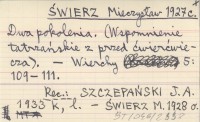 ŚWIERZ Mieczysław 1927 c.
Dwa pokolenia. (Wspomnienie
tatrzańskie z przed ćwierćwie-
cza). — Wierchy 5:
109—111.
Rec.: SZCZEPAŃSKI J.A.
1933 k, l. — ŚWIERZ M. 1928 o.